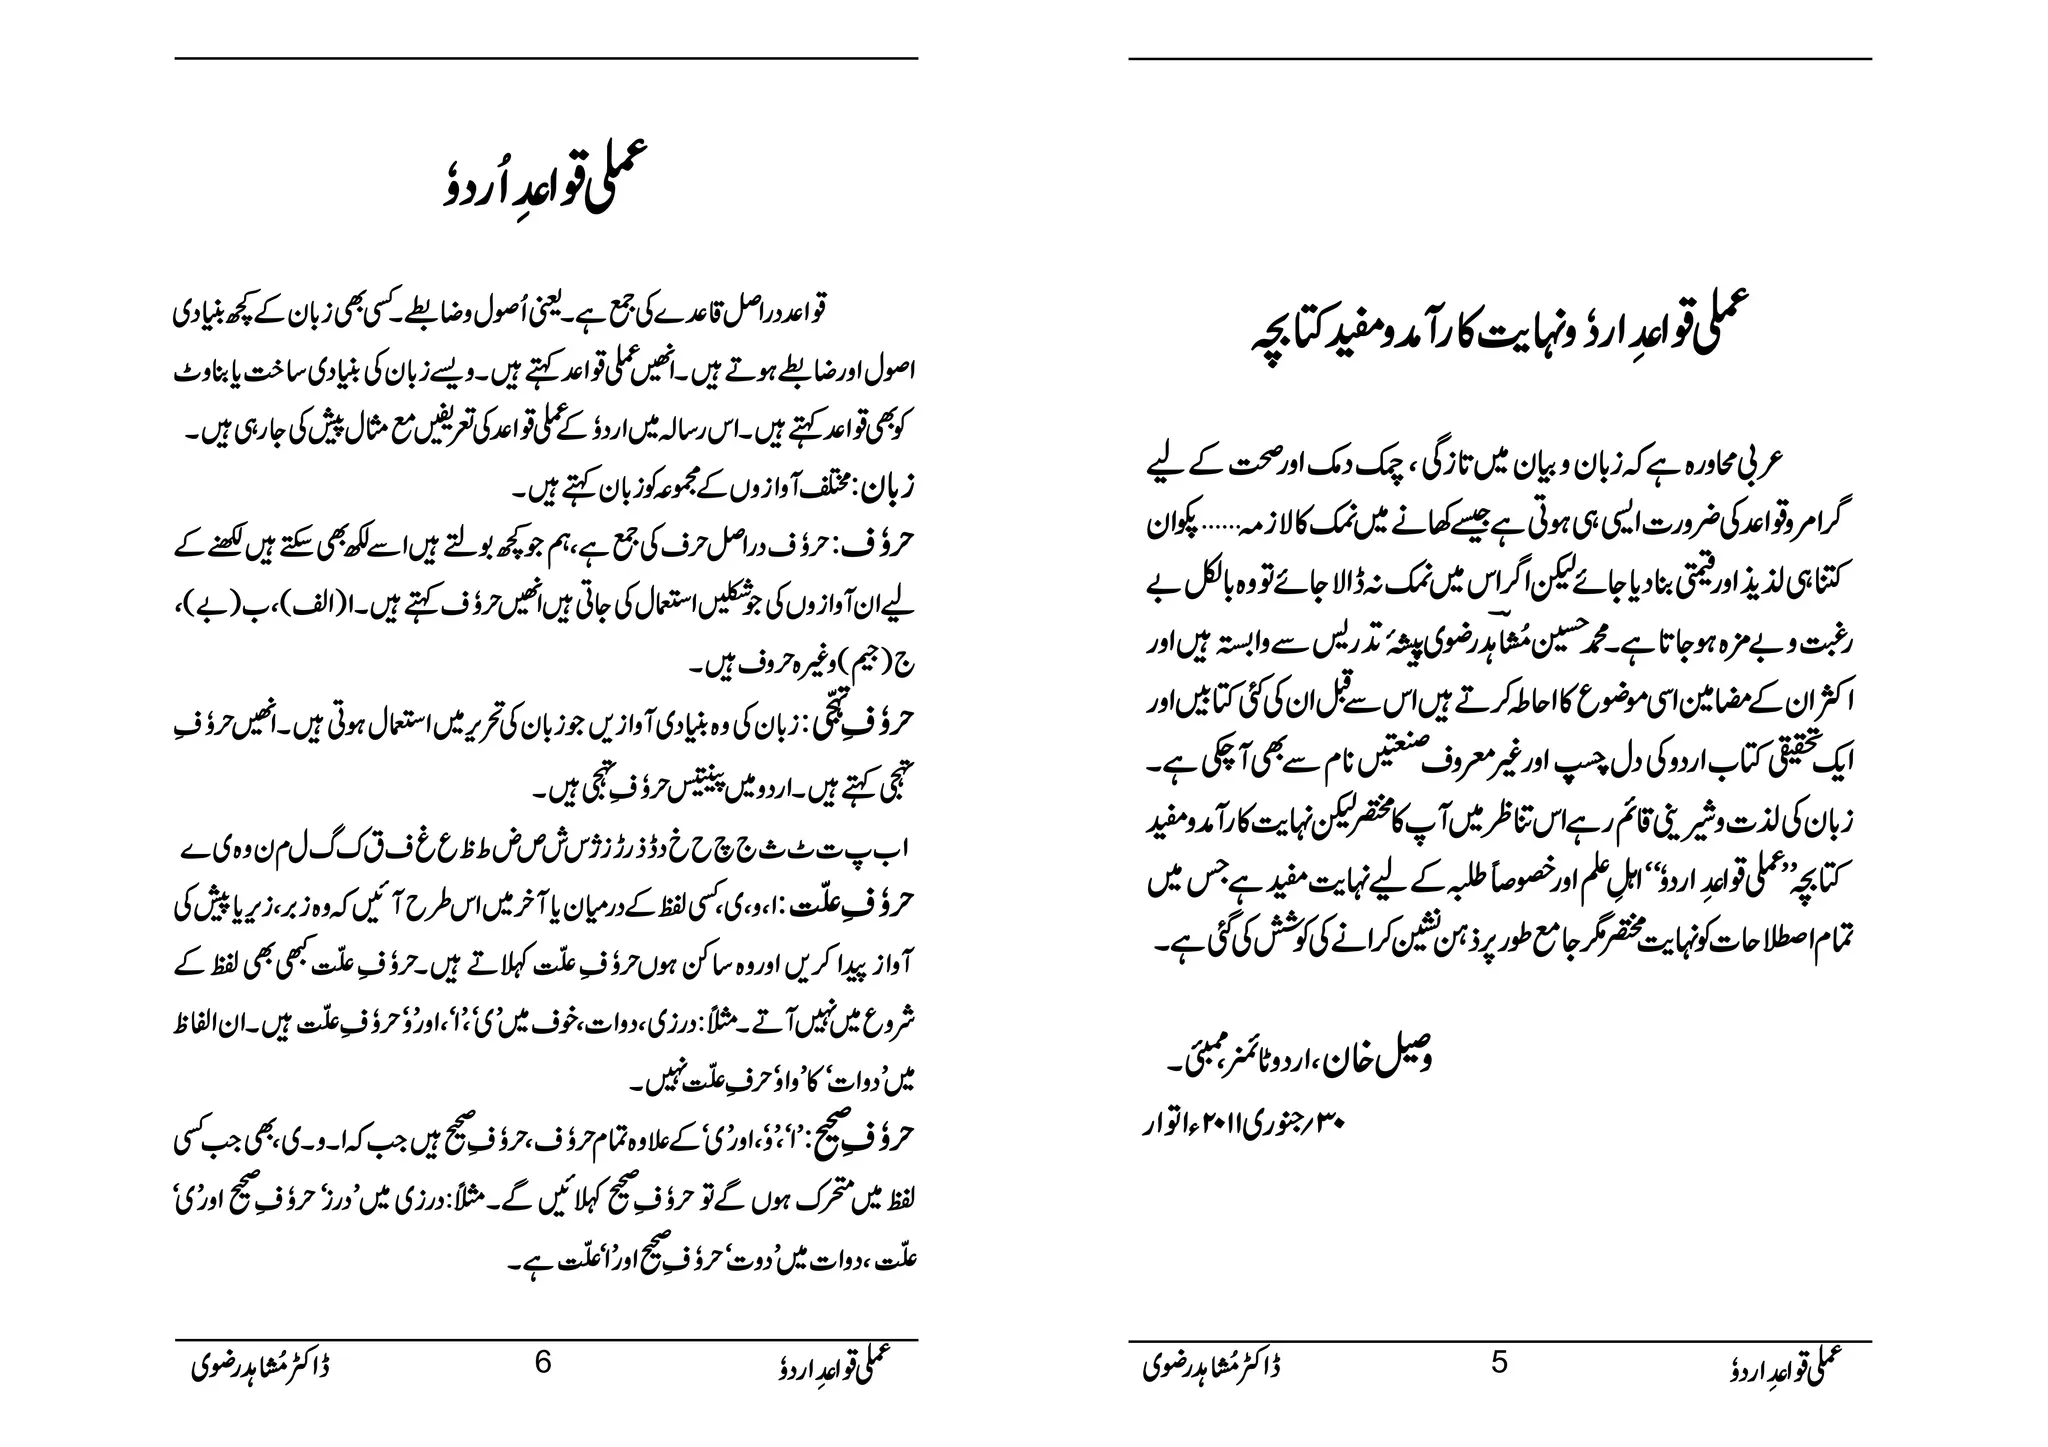 عملی قواعدِ اردؤ نہایت کارآمد و مفید کتابچہ
عربی محاورہ ہے کہ زبان و بیان میں تازگی، چمک دمک اور صحت کے لیے
گرامر و قواعد کی ضرورت ایسی ہی ہوتی ہے جیسے کھانے میں نمک کا لازمہ ...... پکوان
کتنا ہی لذیذ اور قیمتی بنا دیا جائے لیکن اگر اس میں نمک نہ ڈالا جائے تو وہ بالکل بے
رغبت و بے مزہ ہو جاتا ہے۔ محمد حسین مُشاہدؔ رضوی پیشۂ تدریس سے وابستہ ہیں اور
اکثر ان کے مضامین اسی موضوع کا احاطہ کرتے ہیں اس سے قبل ان کی کئی کتابیں اور
ایک تحقیقی کتاب اردو کی دل چسپ اور غیر معروف صنعتیں نام سے بھی آچکی ہے۔
زبان کی لذت و شیرینی قائم رہے اس تناظر میں آپ کا مختصر لیکن نہایت کارآمد و مفید
کتابچہ ’’عملی قواعدِ اردؤ‘‘ اہلِ علم اور خصوصاً طلبہ کے لیے نہایت مفید ہے جس میں
تمام اصطلاحات کو نہایت مختصر مگر جامع طور پر ذہن نشین کرانے کی کوشش کی گئی ہے۔
وصیل خان، اردو ٹائمز، ممبئی۔
۳۰؍ جنوری ۲۰۱۱ء اتوار
عملی قواعدِ اردؤ 5 ڈاکٹر مُشاہد رضوی
عملی قواعدِ اُردؤ
قواعد دراصل قاعدے کی جمع ہے۔ یعنی اُصول و ضابطے۔ کسی بھی زبان کے کچھ بنیادی
اصول اور ضابطے ہوتے ہیں۔ انھیں عملی قواعد کہتے ہیں۔ ویسے زبان کی بنیادی ساخت یا بناوٹ
کو بھی قواعد کہتے ہیں۔ اس رسالہ میں اردؤ کے عملی قواعد کی تعریفیں مع مثال پیش کی جا رہی ہیں۔
زبان: مختلف آوازوں کے مجموعہ کو زبان کہتے ہیں۔
حرؤف: حرؤف دراصل حرف کی جمع ہے، ہم جو کچھ بولتے ہیں اسے لکھ بھی سکتے ہیں لکھنے کے
لیے ان آوازوں کی جو شکلیں استعمال کی جاتی ہیں انھیں حرؤف کہتے ہیں۔ ا (الف)، ب (بے)،
ج (جیم) وغیرہ حروف ہیں۔
حرؤفِ تہجّی: زبان کی وہ بنیادی آوازیں جو زبان کی تحریر میں استعمال ہوتی ہیں۔ انھیں حرؤفِ
تہجی کہتے ہیں۔ اردو میں پینتیس حرؤفِ تہجی ہیں۔
ا ب پ ت ٹ ث ج چ ح خ د ڈ ذ ر ڑ ز ژ س ش ص ض ط ظ ع غ ف ق ک گ ل م ن و ہ ی ے
حرؤفِ علّت: ا، و، ی، کسی لفظ کے درمیان یا آخر میں اس طرح آئیں کہ وہ زبر، زیر یا پیش کی
آواز پیدا کریں اور وہ ساکن ہوں حرؤفِ علّت کہلاتے ہیں۔ حرؤفِ علّت کبھی بھی لفظ کے
شروع میں نہیں آتے۔ مثلاً: درزی، دوات، خوف میں ’ی‘، ’ا‘، اور ’ؤ‘ حرؤفِ علّت ہیں۔ ان الفاظ
میں ’دوات‘ کا ’واؤ‘ حرفِ علّت نہیں۔
حرؤفِ صحیح: ’ا‘، ’ؤ‘، اور ’ی‘ کے علاوہ تمام حرؤف، حرؤفِ صحیح ہیں جب کہ ا۔ و۔ ی، بھی جب کسی
لفظ میں متحرک ہوں گے تو حرؤفِ صحیح کہلائیں گے۔ مثلاً: درزی میں ’درز‘ حرؤفِ صحیح اور ’ی‘
علّت، دوات میں ’دوت‘ حرؤفِ صحیح اور ’ا‘ علّت ہے۔
عملی قواعدِ اردؤ 6 ڈاکٹر مُشاہد رضوی